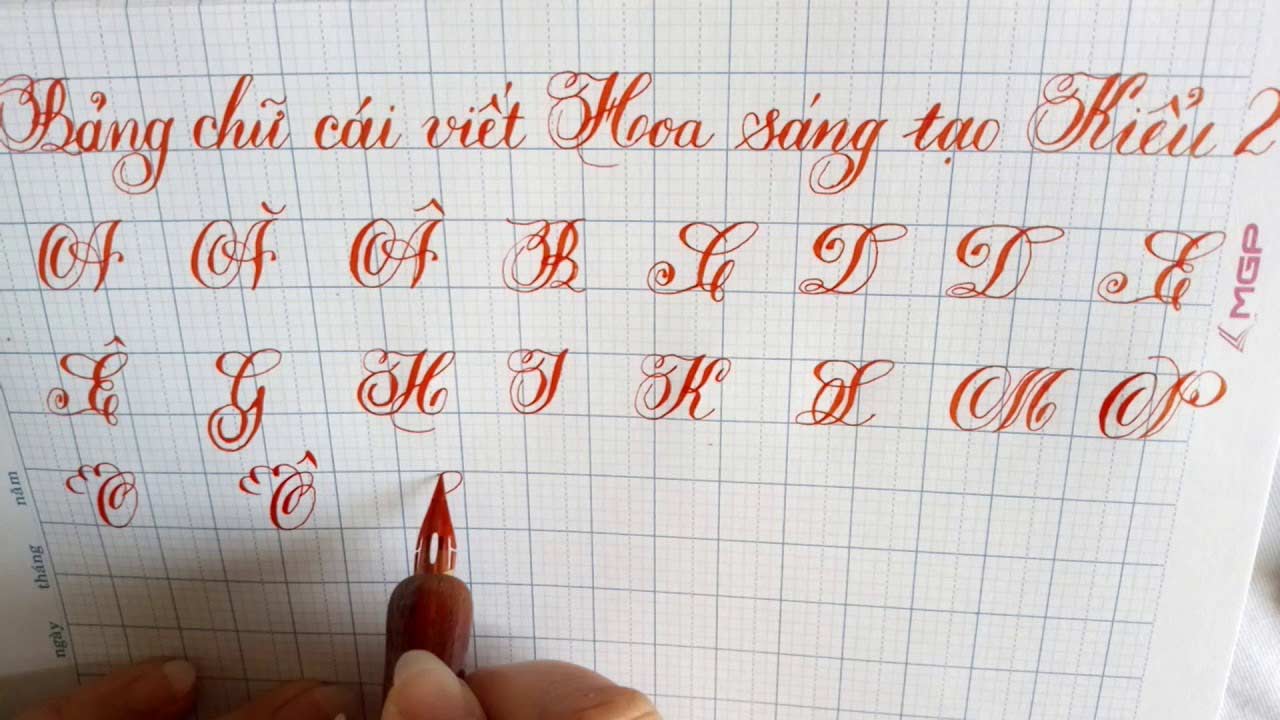 Bảng chữ cái viết Hoa sáng tạo Kiểu 2
A Ă Â B C D D E
Ê G H I K L M N
O Ô
MGP
năm
tháng
ngày